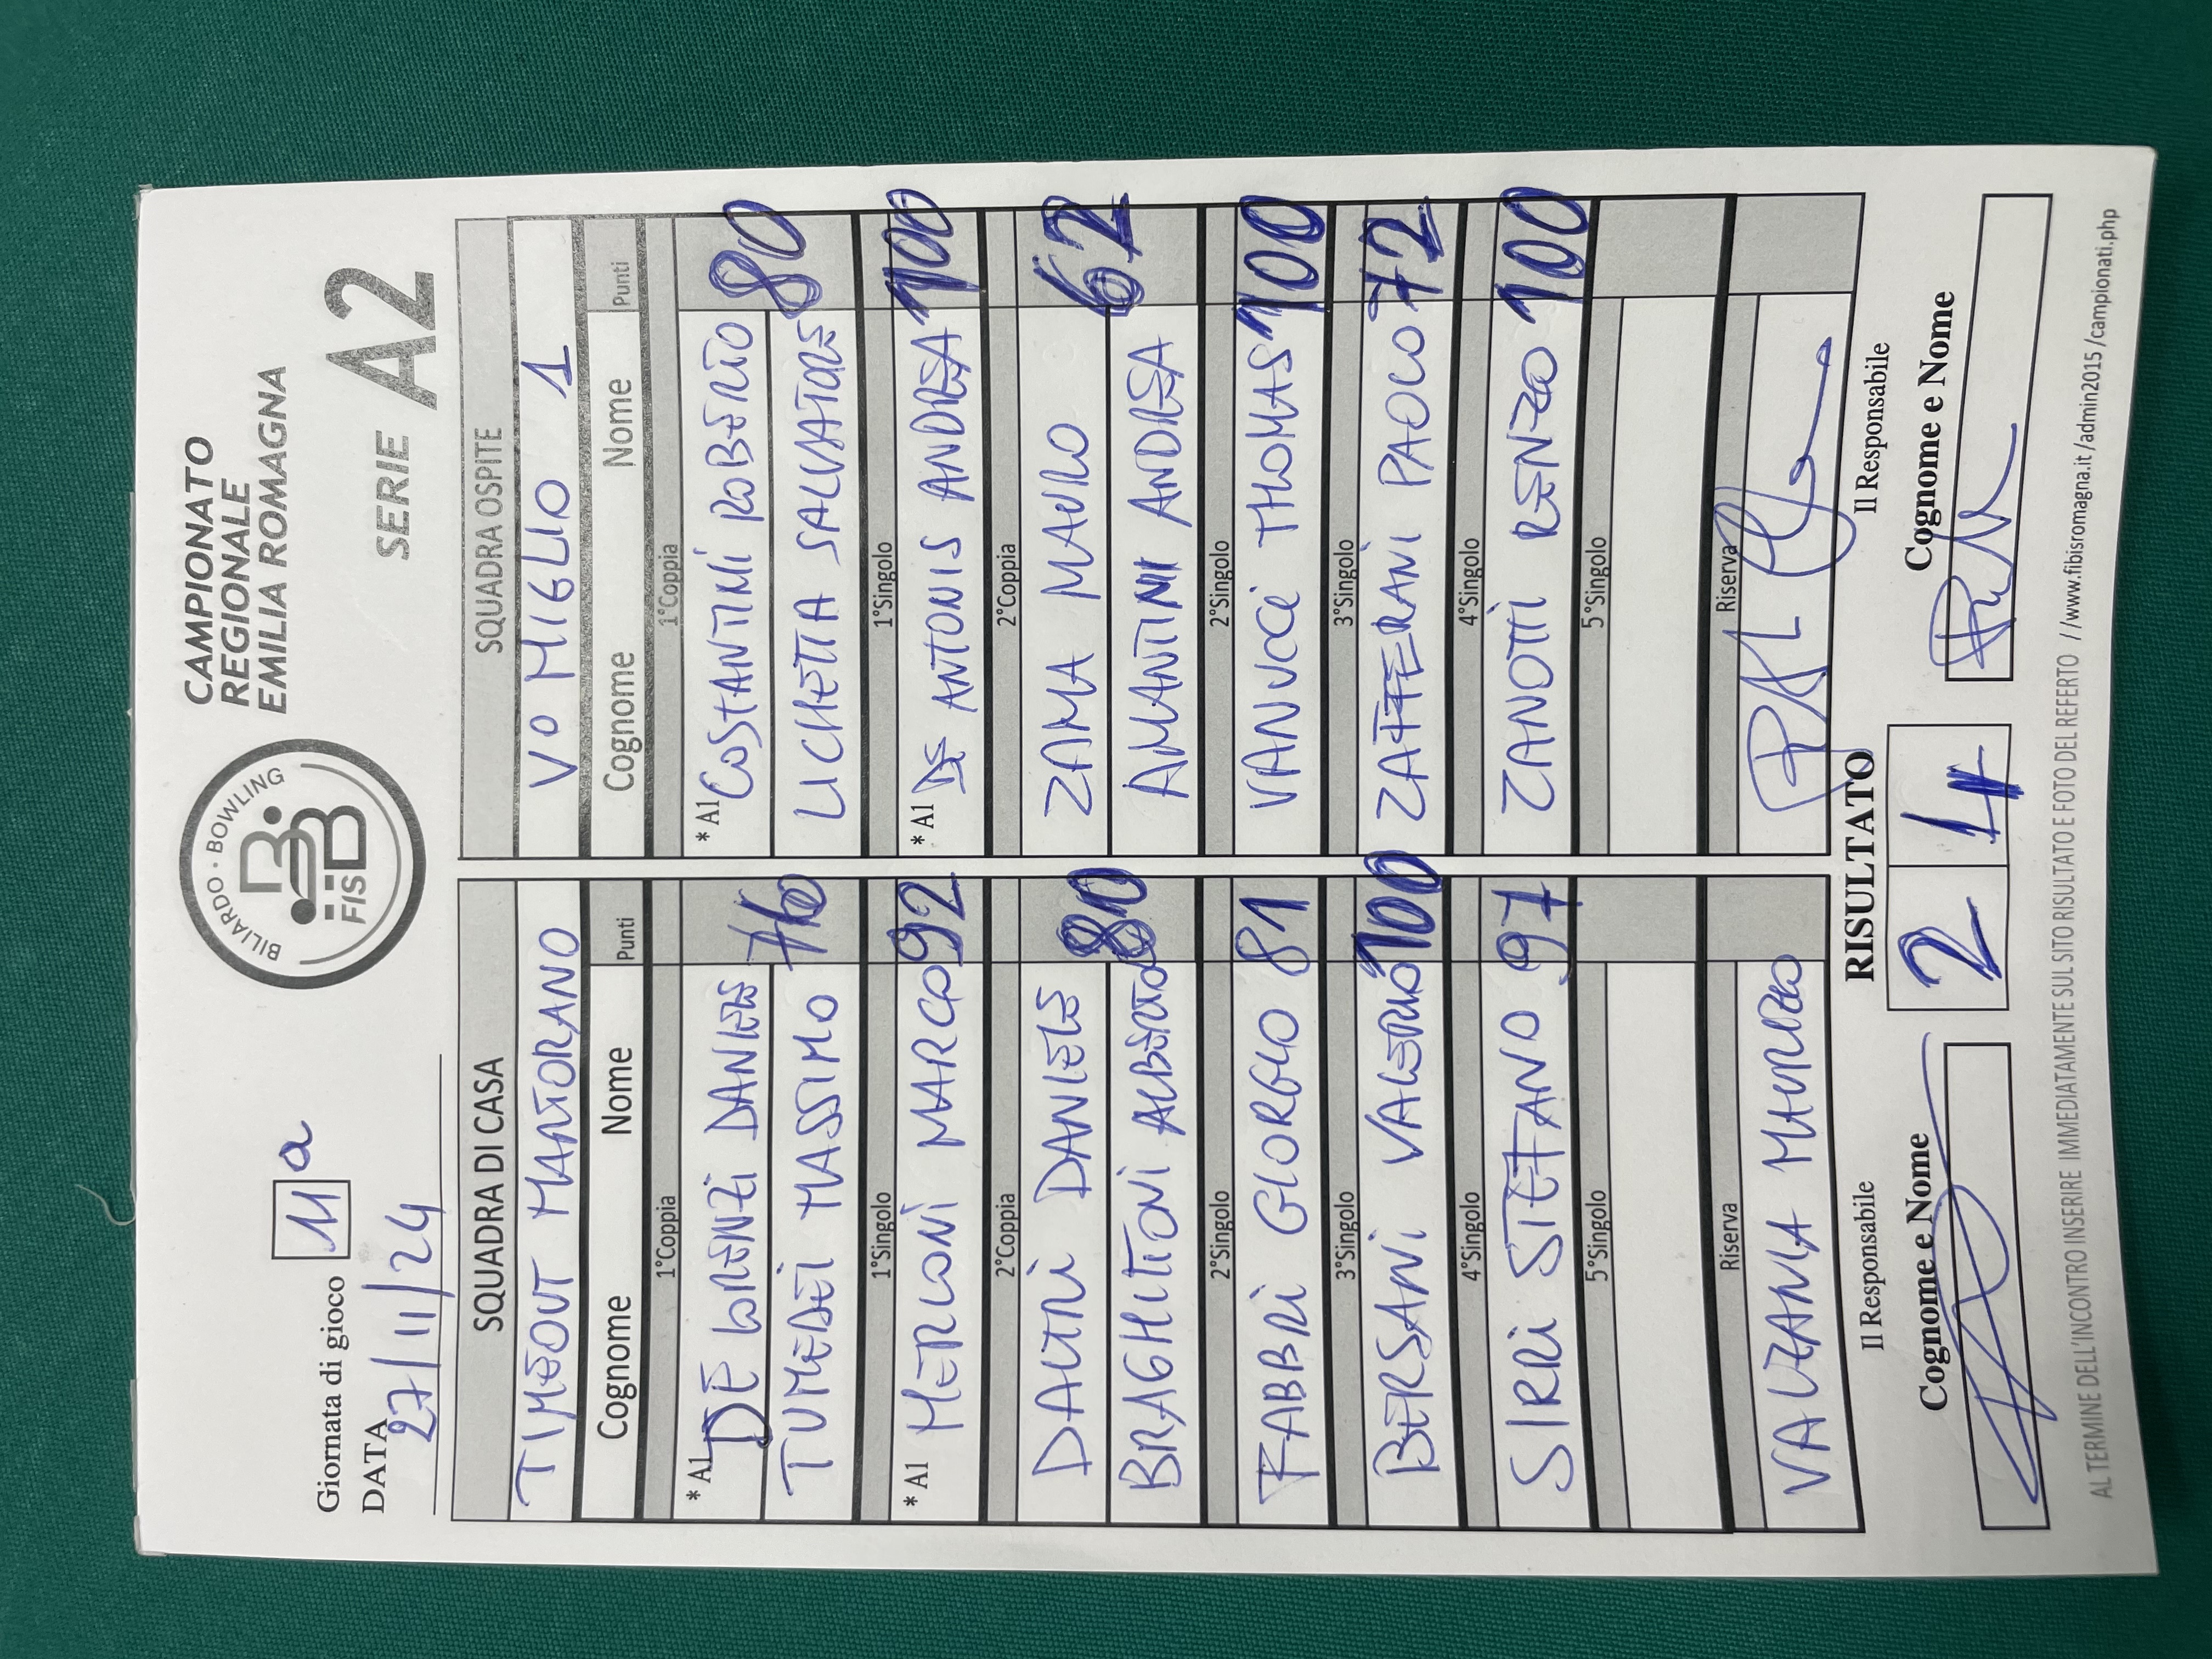 Giornata di gioco 11 a
DATA 27/11/24
BILIARDO · BOWLING
FISBB
CAMPIONATO
REGIONALE
EMILIA ROMAGNA
SERIE A2
SQUADRA DI CASA
TIMEOUT MARTORANO
Cognome Nome Punti
1°Coppia
*A1 DE LORENZI DANIELE
TUMEDEI MASSIMO 76
1°Singolo
*A1 MERLONI MARCO 92
2°Coppia
DALTRI DANIELE
BRAGHITTONI ALBERTO 80
2°Singolo
FABBRI GIORGIO 81
3°Singolo
BERSANI VALERIO 100
4°Singolo
SIRRI STEFANO 97
5°Singolo
Riserva
VALZANIA MAURIZIO
Il Responsabile
Cognome e Nome
SQUADRA OSPITE
VO MIGLIO 1
Cognome Nome Punti
1°Coppia
*A1 COSTANTINI ROBERTO
LICHETTA SALVATORE 80
1°Singolo
*A1 DE ANTONIS ANDREA 100
2°Coppia
ZAMA MAURO
AMANTINI ANDREA 62
2°Singolo
VANUCCI THOMAS 100
3°Singolo
ZAFFERANI PAOLO 72
4°Singolo
ZANOTTI RENZO 100
5°Singolo
Riserva
Il Responsabile
Cognome e Nome
RISULTATO
2 4
AL TERMINE DELL'INCONTRO INSERIRE IMMEDIATAMENTE SUL SITO RISULTATO E FOTO DEL REFERTO //www.fibisromagna.it/admin2015/campionati.php